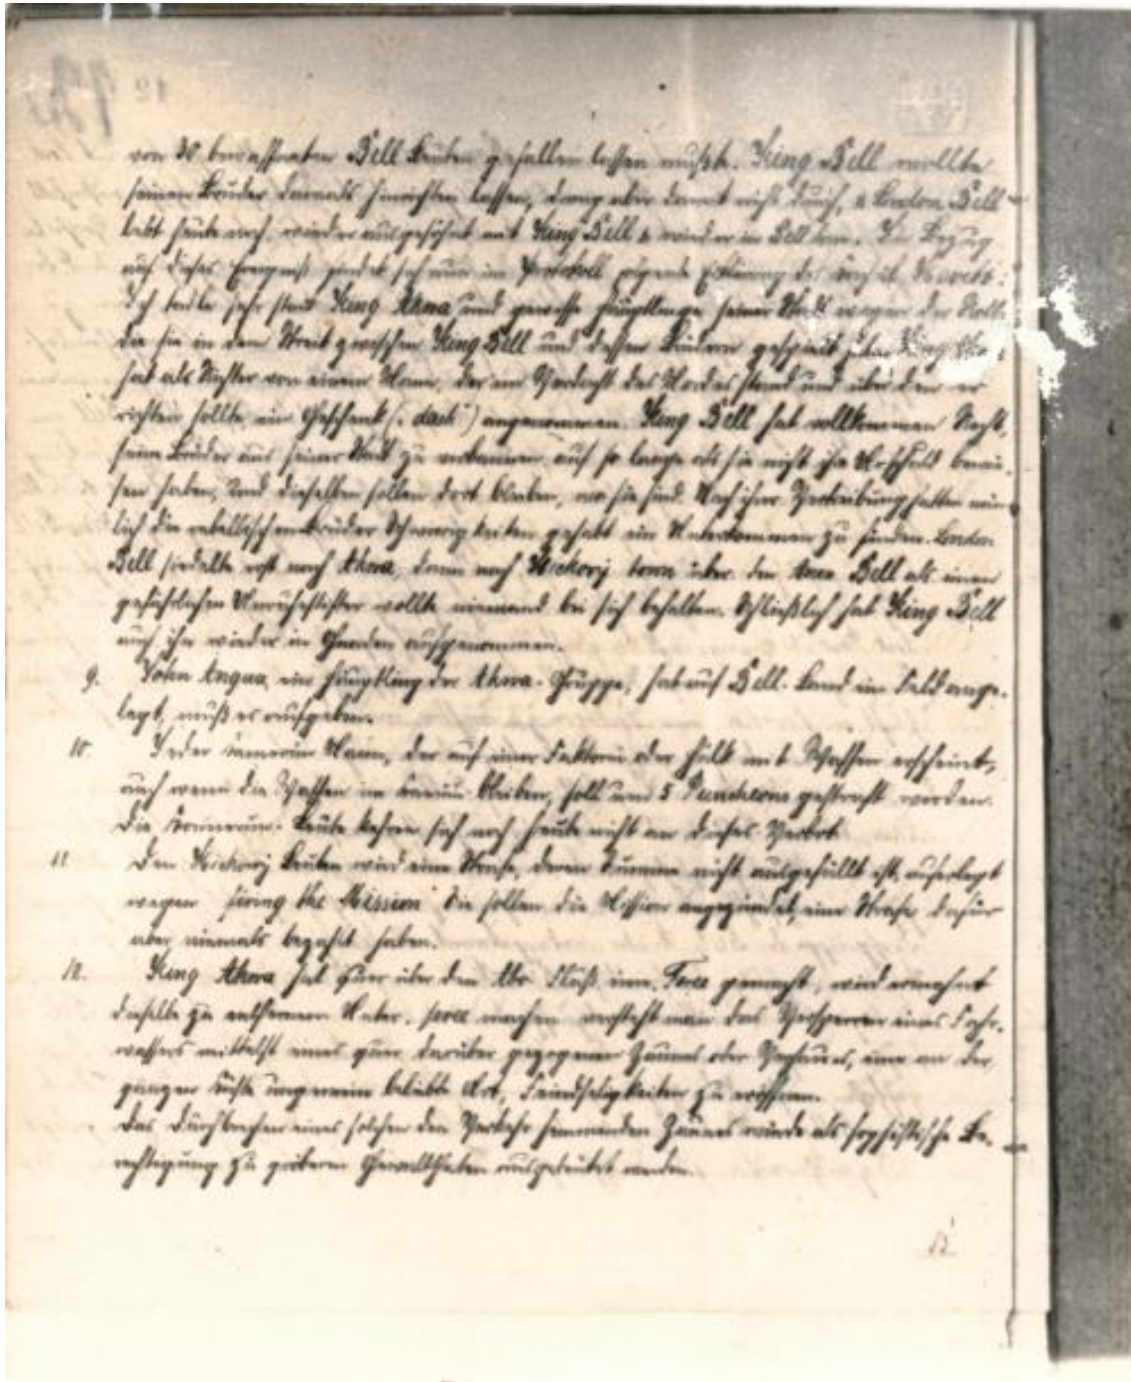 von 30 bewaffneten Bell Leuten gefallen lassen mußte. King Bell wollte
seinen Bruder damals hinrichten lassen, drang aber damit nicht durch, & London Bell
lebt heute noch, wieder ausgesöhnt mit King Bell & wieder in Bell town. In Bezug
auf dieses Ereigniß findet sich nun im Protokoll folgende Erklärung des Consul Hewett:
Ich tadle sehr stark King Akwa und gewisse Häuptlinge seiner Stadt wegen der Rolle
die sie in dem Streit zwischen King Bell und dessen Brüdern gespielt King
hat als Richter von einem Mann, der im Verdacht des Mordes stand und über den er
richten sollte, ein Geschenk („dash“) angenommen. King Bell hat vollkommen Recht,
seine Brüder aus seiner Stadt zu verbannen auf so lange als sie nicht ihre Unschuld bewie-
sen haben, und dieselben sollen dort bleiben, wo sie sind. Nach ihrer Vertreibung hatten näm-
lich die rebellischen Brüder Schwierigkeiten gehabt ein Unterkommen zu finden. London
Bell siedelte erst nach Akwa, dann nach Hickory town über. den Bell als einen
gefährlichen Unruhestifter wollte niemand bei sich behalten. Schließlich hat King Bell
auch ihn wieder in Gnaden aufgenommen.
9. John Angua, ein Häuptling der Akwa-Gruppe, hat auf Bell-Land ein Feld ange-
legt, muß es aufgeben.
10. Jeder Mann, der auf einer Faktorei oder Hulk mit Waffen erscheint,
auch wenn die Waffen im bleiben, soll um 5 Puncheons gestraft werden.
Die Leute kehren sich noch heute nicht an dieses Verbot.
11. Den Hickory Leuten wird eine Strafe, deren Summe nicht ausgefüllt ist, auferlegt
wegen firing the Mission. Sie sollen die Mission angezündet, eine Strafe dafür
aber niemals bezahlt haben.
12. King Akwa hat quer über den Abo Fluß eine gemacht, wird ermahnt
dieselbe zu entfernen. Unter machen versteht man das Versperren eines Fahr-
wassers mittelst eines quer darüber gezogenen Zaunes oder Verhaues, eine an der
ganzen Küste ungemein beliebte Art, Feindseligkeiten zu eröffnen.
Das Durchbrechen eines solchen den Verkehr hemmenden Zaunes würde als sophistische Be-
rechtigung zu gröberen Gewaltthaten ausgedeutet werden.